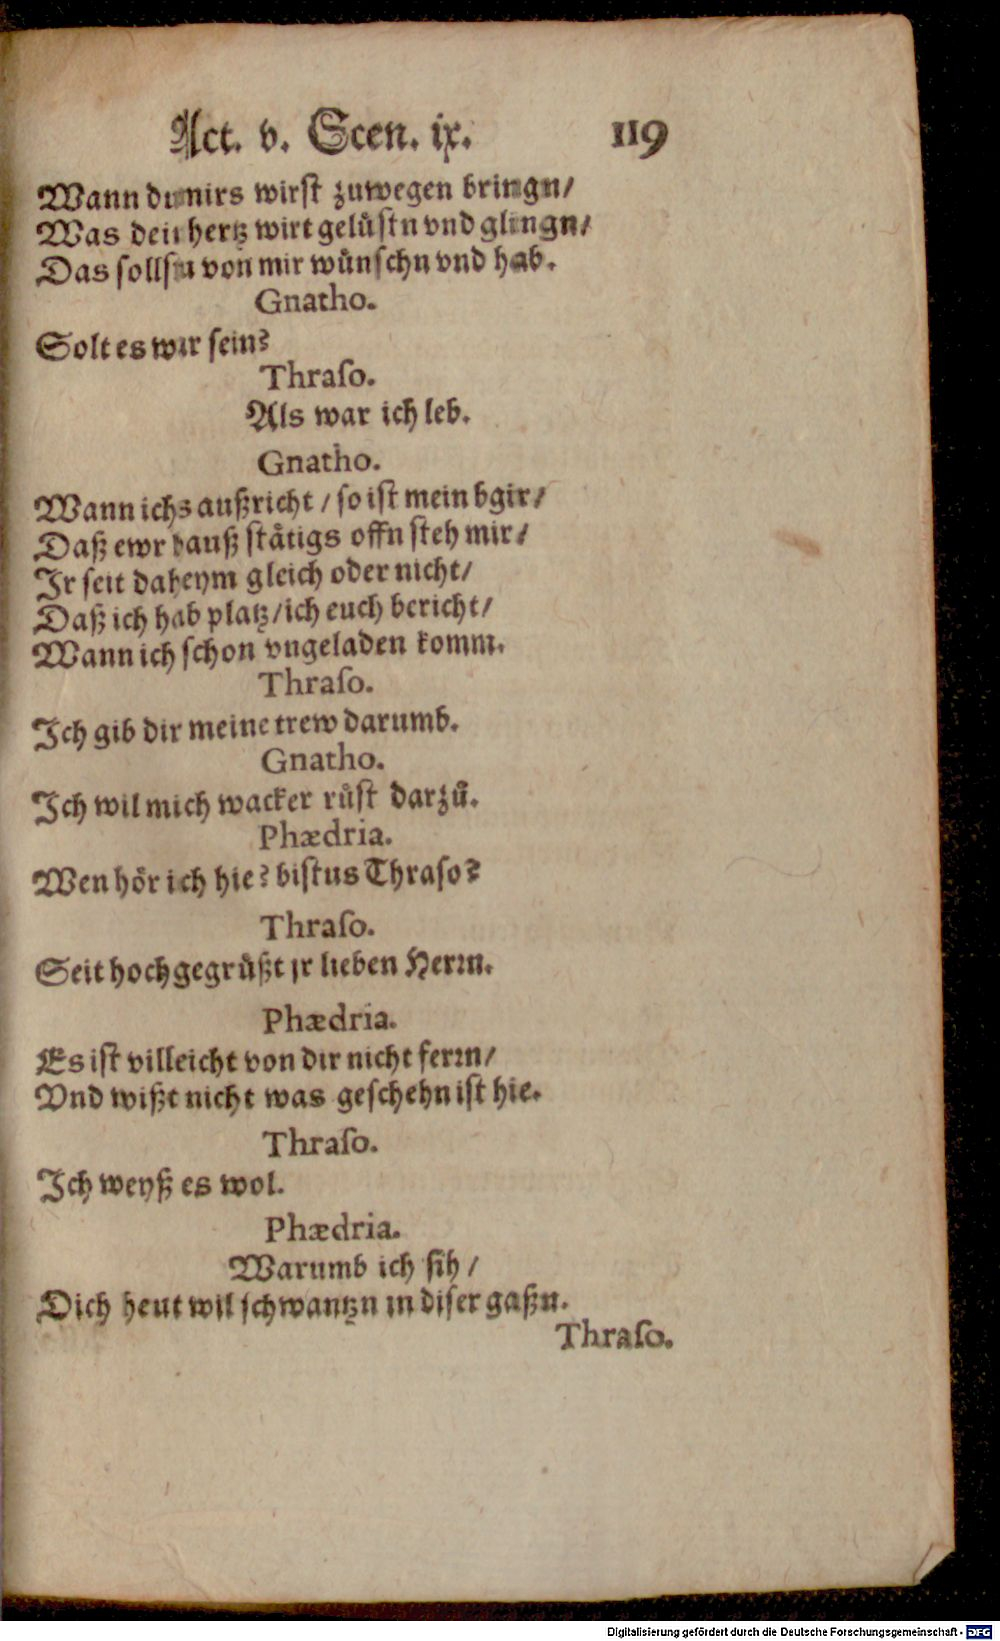 Act. v. Scen. ix. 119
Wann du mirs wirst zuwegen bringn/
Was dein hertz wirt gelüstn vnd glingn/
Das sollstu von mir wünschn vnd hab.
Gnatho.
Solt es war sein?
Thraso.
Als war ich leb.
Gnatho.
Wann ichs außricht / so ist mein bgir/
Daß ewr hauß stätigs offn steh mir/
Ir seit daheym gleich oder nicht/
Daß ich hab platz/ich euch bericht/
Wann ich schon vngeladen komm.
Thraso.
Ich gib dir meine trew darumb.
Gnatho.
Ich wil mich wacker rüst darzů.
Phædria.
Wen hör ich hie? bistus Thraso?
Thraso.
Seit hoch gegrüßt jr lieben Herrn.
Phædria.
Es ist villeicht von dir nicht ferrn/
Vnd wißt nicht was geschehn ist hie.
Thraso.
Ich weyß es wol.
Phædria.
Warumb ich sih /
Dich heut wil schwantzn in diser gaßn.
Thraso.
Digitalisierung gefördert durch die Deutsche Forschungsgemeinschaft - DFG